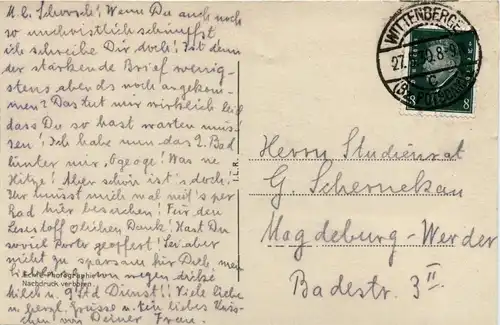 M. l. Schorsch! Wenn Du auch noch
so unchristlich schimpfst
ich schreibe Dir doch! Ist denn
der stärkende Brief wenig-
stens abends noch angekom-
men? Das tut mir wirklich leid
dass Du so hast warten müs-
sen! Ich habe nun das 2. Bad
hinter mir. Was ne
Hitze! Aber schön ist's doch.
Ihr müsst mich mal mit's per
Rad hier besuchen! Für den
Lesestoff Dank! Hast Du
soviel Porto geopfert! Sei aber
nicht zu sparsam für Dich, mein
von wegen dicke
Milch u. 9 Std Dienst!! Viele liebe
u. herzl. Grüsse u. ein liebes Küss-
chen von Deiner Frau.
Echte Photographie
Nachdruck verboten
I.L.R.
WITTENBERGE
27. 8-9
c
(BZ. POTSDAM)
8 8
Herrn Studienrat
G. Schernekau
Magdeburg-Werder
Badestr. 3 II